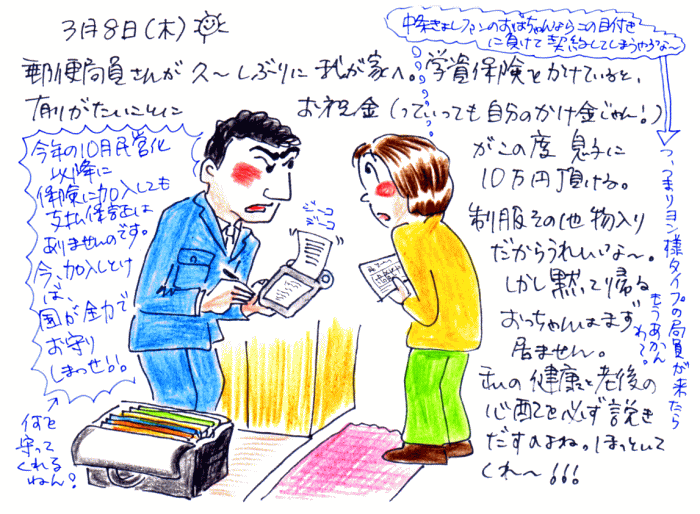 3月8日(木)
中条きよしファンのおばちゃんならこの目付き
に負けて契約してしまうやろな〜
郵便局員さんが久〜しぶりに我が家へ。学資保険をかけていると、
有りがたいことに お祝金(っていっても自分のかけ金じゃん!)
がこの度 息子に
10万円頂ける。
制服その他 物入り
だからうれしいな〜。
しかし黙って帰る
おっちゃんはまず
居ません。
私の健康と老後の
心配を必ず説き
だすのよね。ほっといて
くれ〜!!!
つまりヨン様タイプの局員が来たら
もうあかん
わ〜。
今年の10月民営化
以降に
保険に加入しても
支払保証は
ありませんのです。
今、加入しとけ
ば、
国が全力で
お守り
しまっせ!!
何を
守って
くれる
ねん?